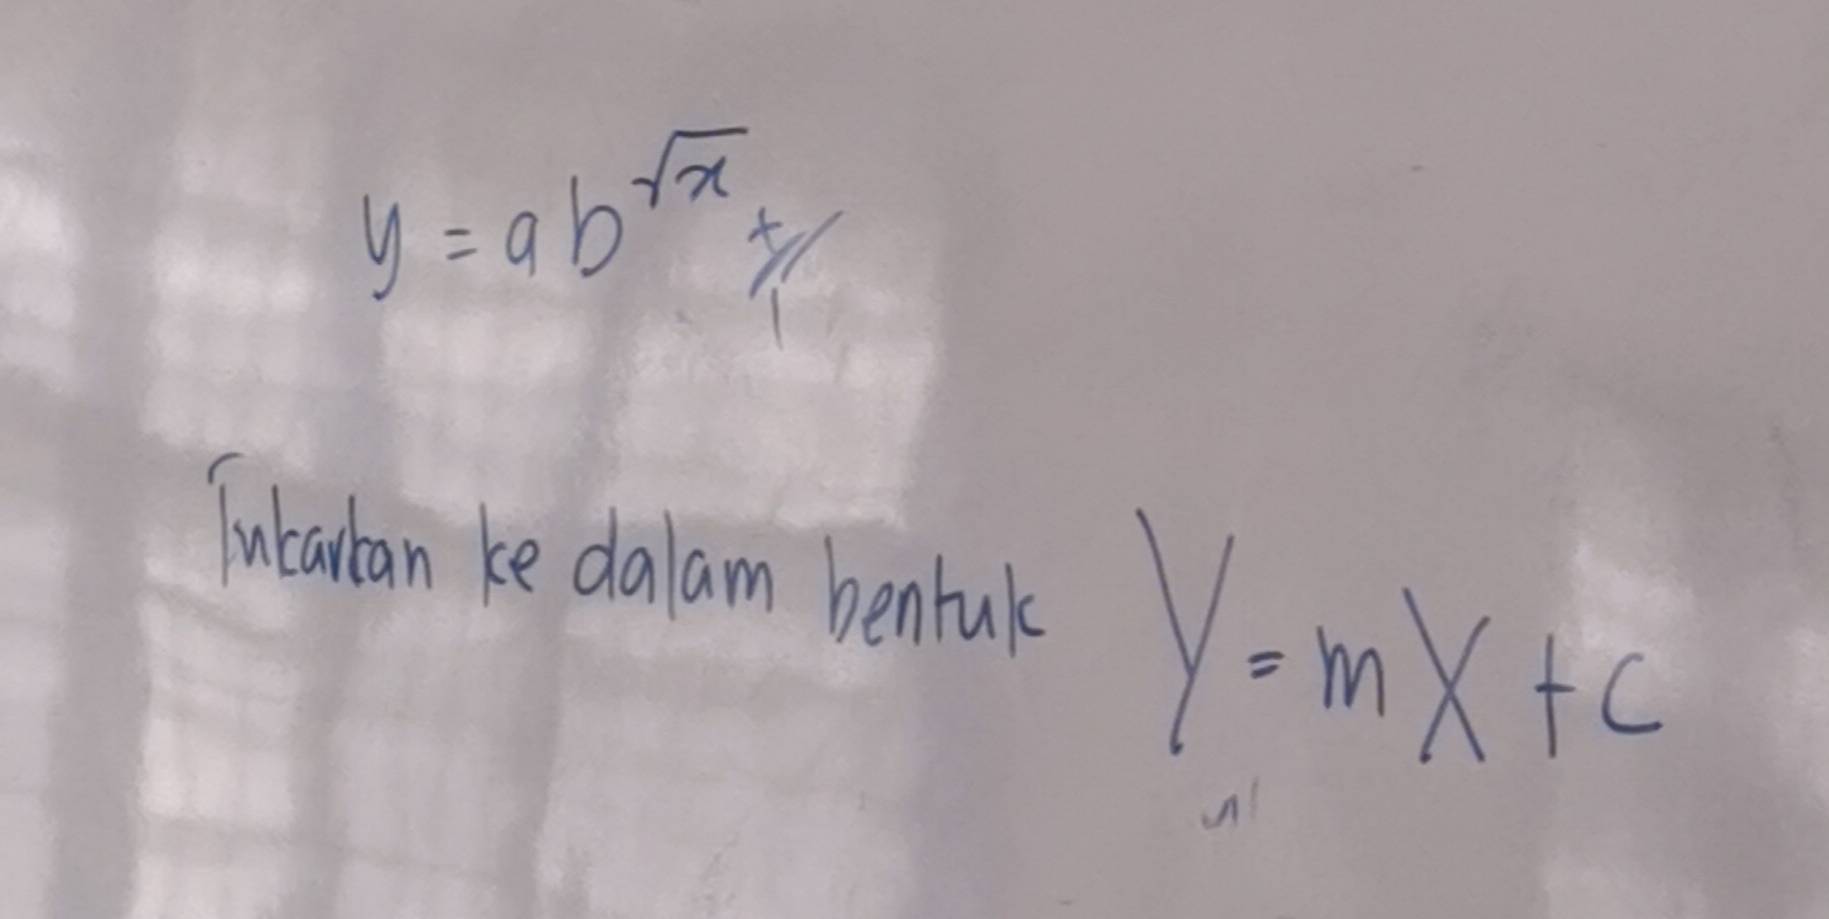 y = ab^√x
Tukarkan ke dalam bentuk Y = mX + c